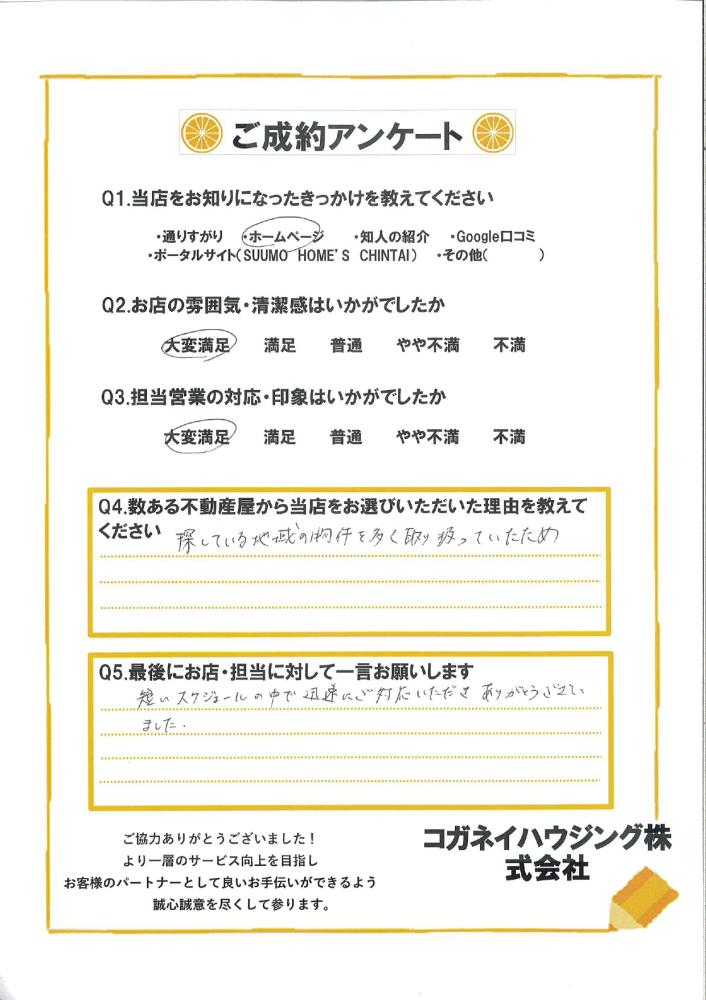 ご成約アンケート
Q1.当店をお知りになったきっかけを教えてください
・通りすがり ・ホームページ ・知人の紹介 ・Google口コミ
・ポータルサイト(SUUMO HOME'S CHINTAI) ・その他( )
Q2.お店の雰囲気・清潔感はいかがでしたか
大変満足 満足 普通 やや不満 不満
Q3.担当営業の対応・印象はいかがでしたか
大変満足 満足 普通 やや不満 不満
Q4.数ある不動産屋から当店をお選びいただいた理由を教えて
ください 探している地域の物件を多く取り扱っていたため
Q5.最後にお店・担当に対して一言お願いします
短いスケジュールの中で迅速にご対応いただきありがとうござい
ました.
ご協力ありがとうございました!
より一層のサービス向上を目指し
お客様のパートナーとして良いお手伝いができるよう
誠心誠意を尽くして参ります。
コガネイハウジング株
式会社